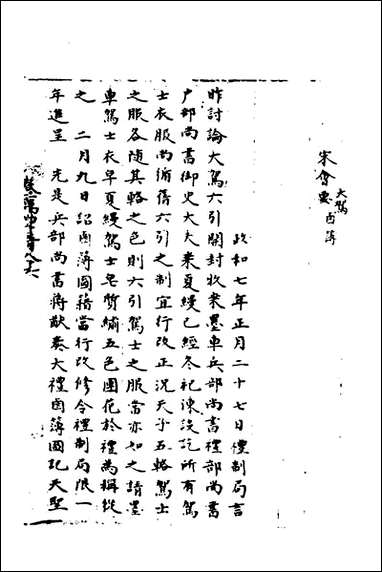 宋會要
大駕
鹵簿
政和七年正月二十七日禮制局言
昨討論大駕六引開封牧乘墨車兵部尚書禮部尚書
户部尚書御史大夫乘夏縵已經冬祀陳設訖所有駕
士衣服尚循舊六引之制宜行改正況天子五輅駕士
之服各随其輅之色則六引駕士之服當亦如之請墨
車駕士衣皁夏縵駕士皂質繡五色團花於禮為稱從
之　二月九日詔鹵簿圖籍當行改修令禮制局限一
年進呈　先是兵部尚書蔣猷奏大禮鹵簿圖記天聖